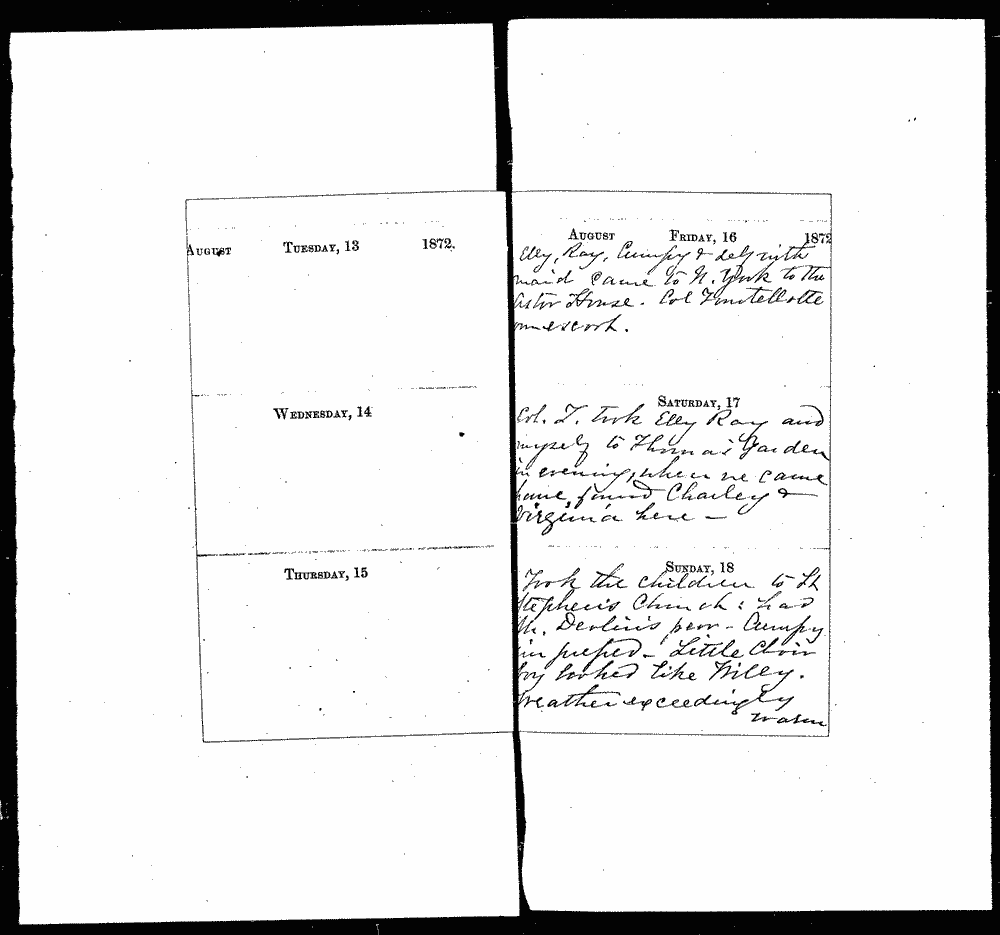 AUGUST TUESDAY, 13 1872.
WEDNESDAY, 14
THURSDAY, 15
AUGUST FRIDAY, 16 1872
Elly, Ray, Cumpy & self with
maid came to N. York to the
Astor House. Col
escort.
SATURDAY, 17
Col. T. took Elly Ray and
myself to Thomas' Garden
in evening, when we came
home, found Charley &
Virginia here —
SUNDAY, 18
Took the children to St
Stephen's Church: had
Mr. Devlin's pew - Cumpy
Little Choir
boy looked like Willy.
Weather exceedingly
warm